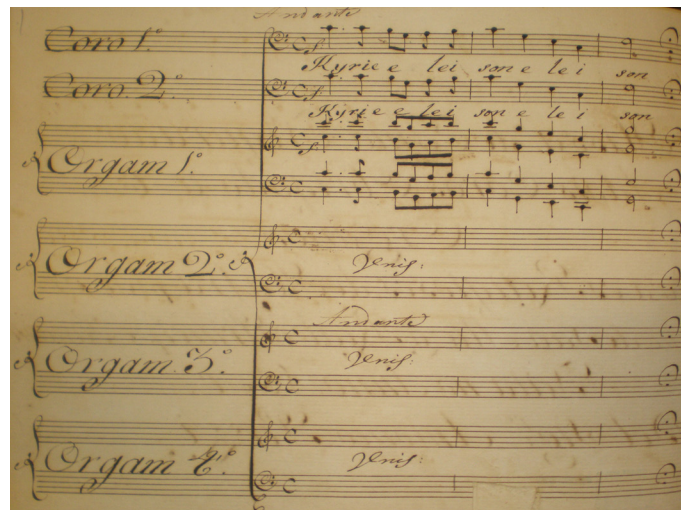 Andante
Coro 1.º
Kyrie e lei son e lei son
Coro 2.º
Kyrie e lei son e lei son
Orgam 1.º
Orgam 2.º
Andante
Orgam 3.º
Orgam 4.º